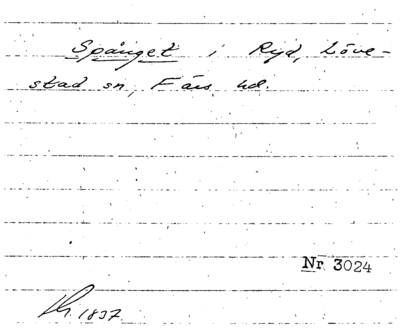 Spånget i Ryd, Löve-
stad sn, Färs hd.
Nr 3024
1837